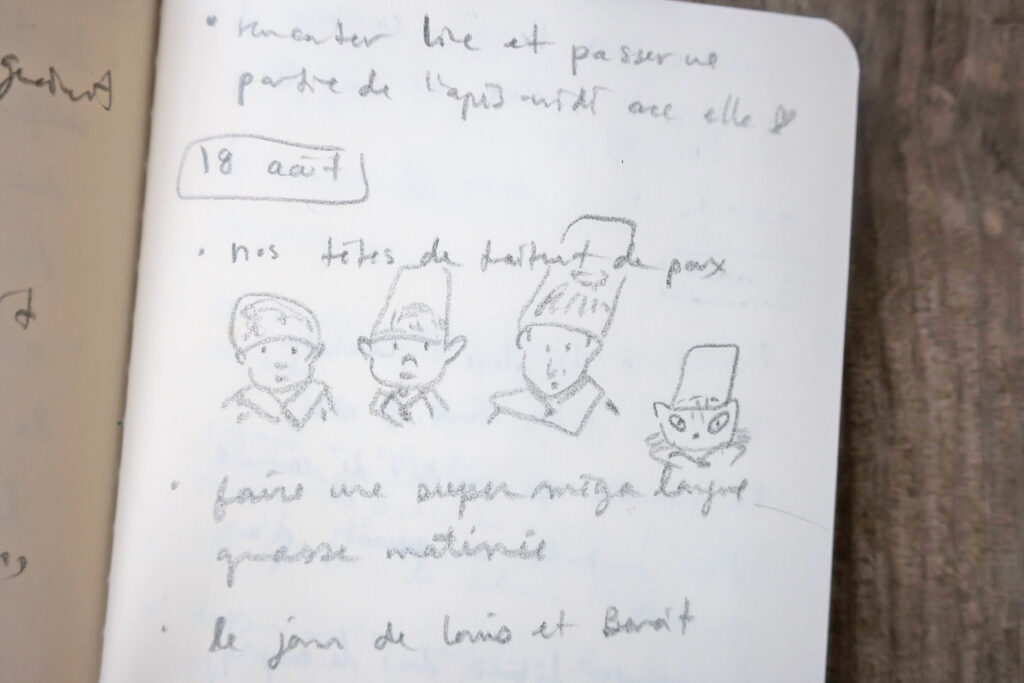 • rencontrer Lise et passer une
partie de l'après-midi avec elle
18 août
• nos têtes de traitement de poux
• faire une super méga longue
grasse matinée
• le jour de Louis et Benoît